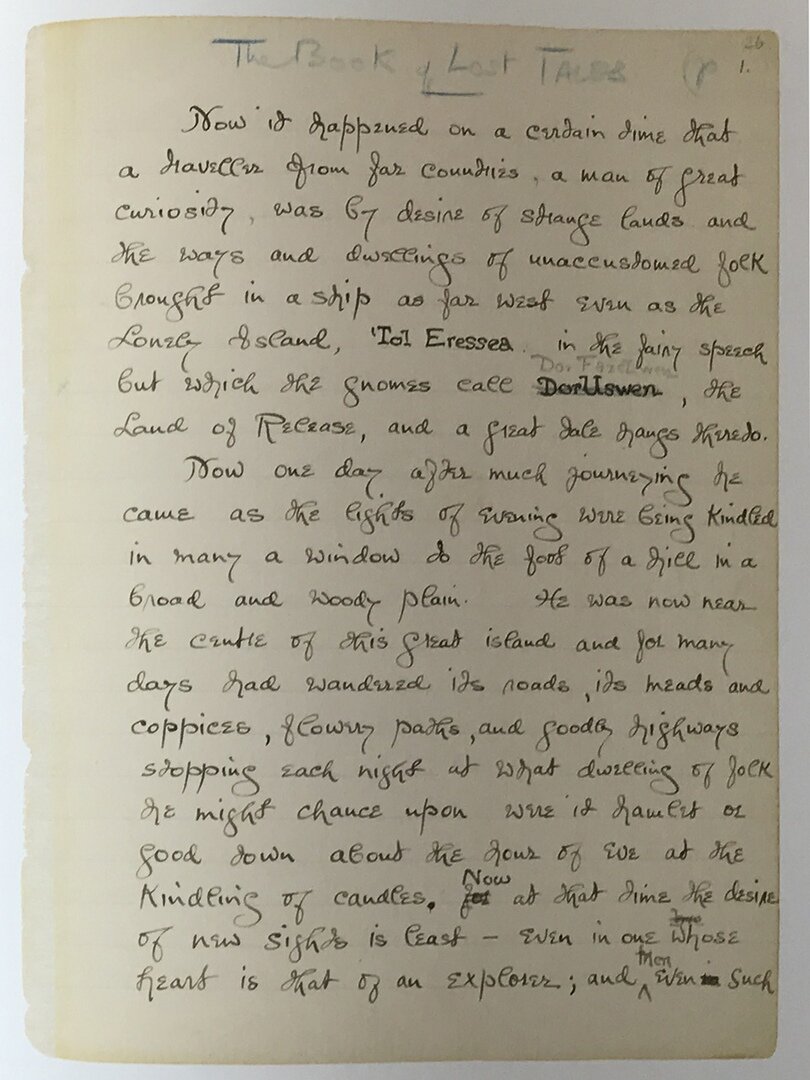 The Book of Lost Tales (p 1.
26
Now it happened on a certain time that
a traveller from far countries, a man of great
curiosity, was by desire of strange lands and
the ways and dwellings of unaccustomed folk
brought in a ship as far west even as the
Lonely Island, 'Tol Eressea in the fairy speech
but which the gnomes call Dor Uswen, the
Land of Release, and a great tale hangs thereto.
Now one day after much journeying he
came as the lights of evening were being kindled
in many a window to the foot of a hill in a
broad and woody plain. He was now near
the centre of this great island and for many
days had wandered its roads, its meads and
coppices, flowery paths, and goodly highways
stopping each night at what dwelling of folk
he might chance upon were it hamlet or
good town about the hour of eve at the
kindling of candles. for Now at that time the desire
of new sights is least – even in one whose
heart is that of an explorer; and then even in such